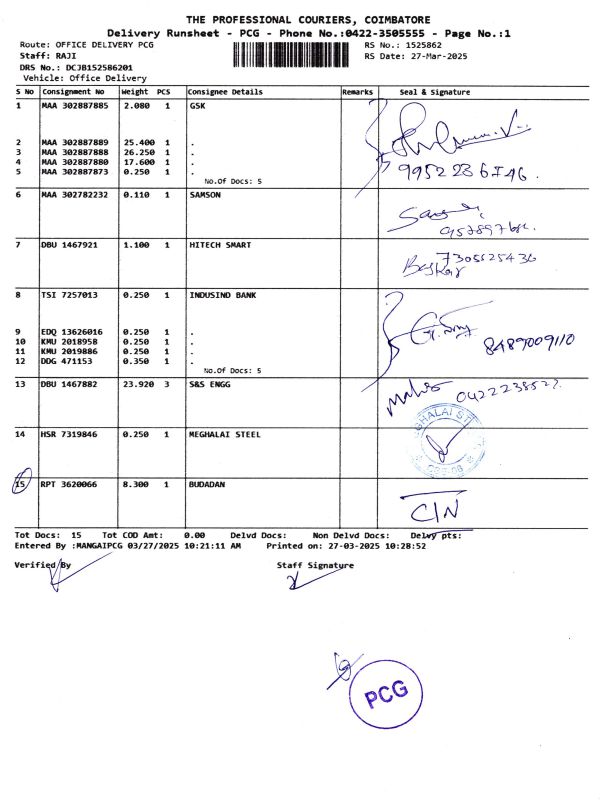 THE PROFESSIONAL COURIERS, COIMBATORE
Delivery Runsheet - PCG - Phone No.:0422-3505555 - Page No.:1
Route: OFFICE DELIVERY PCG RS No.: 1525862
Staff: RAJI RS Date: 27-Mar-2025
DRS No.: DCJB152586201
Vehicle: Office Delivery
S No Consignment No Weight PCS Consignee Details Remarks Seal & Signature
1 MAA 302887885 2.080 1 GSK
2 MAA 302887889 25.400 1 .
3 MAA 302887888 26.250 1 .
4 MAA 302887880 17.600 1 .
5 MAA 302887873 0.250 1 .
No.Of Docs: 5
9952286746.
6 MAA 302782232 0.110 1 SAMSON
7 DBU 1467921 1.100 1 HITECH SMART
7305625436
Baskar
8 TSI 7257013 0.250 1 INDUSIND BANK
9 EDQ 13626016 0.250 1 .
10 KMU 2018958 0.250 1 .
11 KMU 2019886 0.250 1 .
12 DDG 471153 0.350 1 .
No.Of Docs: 5
8489009110
13 DBU 1467882 23.920 3 S&S ENGG
14 HSR 7319846 0.250 1 MEGHALAI STEEL
15 RPT 3620066 8.300 1 BUDADAN
C/N
Tot Docs: 15 Tot COD Amt: 0.00 Delvd Docs: Non Delvd Docs: Delvy pts:
Entered By :MANGAIPCG 03/27/2025 10:21:11 AM Printed on: 27-03-2025 10:28:52
Verified By Staff Signature
PCG